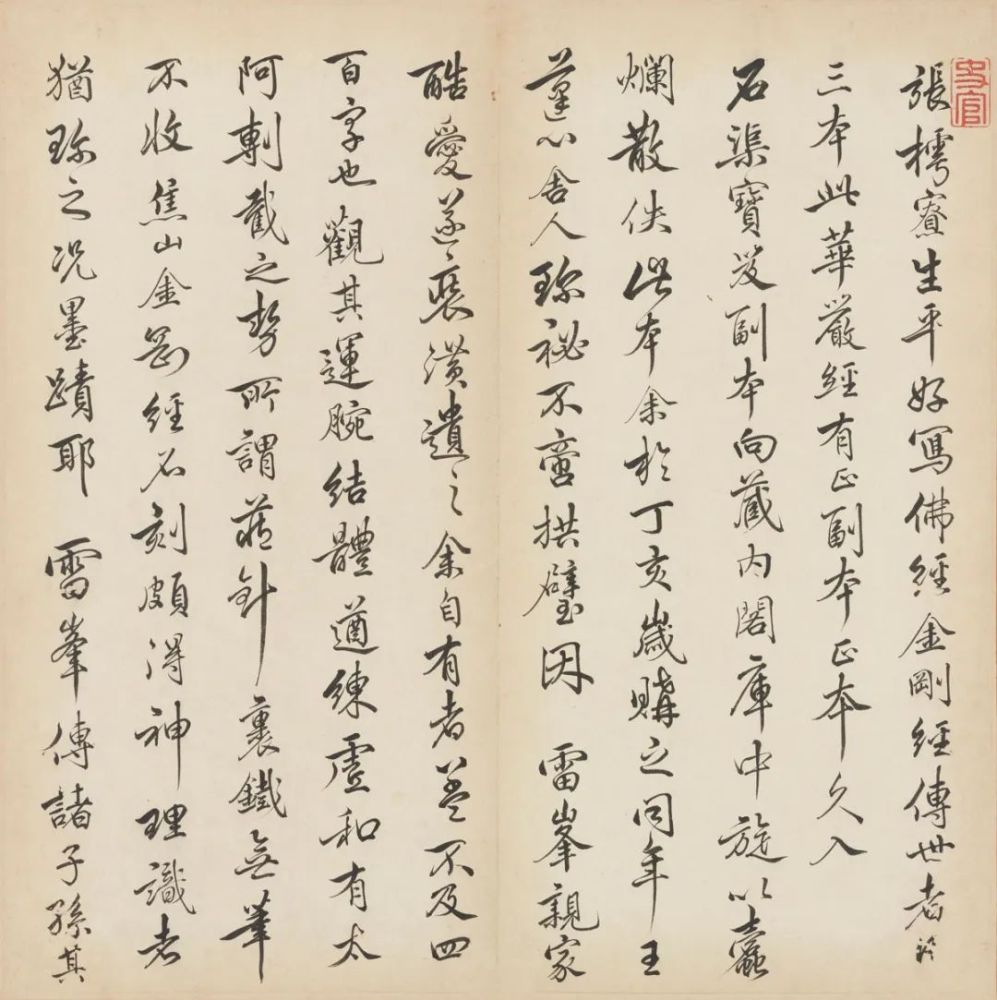 史官
張樗寮生平好寫佛經金剛經傳世者
三本此華嚴經有正副本正本久入
石渠寶笈副本向藏內閣庫中旋以蠹
爛散佚此本余於丁亥歲購之同年王
蓬心舍人珍祕不啻拱璧因 雷峯親家
酷愛遂裝潢遺之余自有者蓋不及四
百字也觀其運腕結體遒練虛和有太
阿剸截之勢所謂藏針裹鐵無筆
不收焦山金剛經石刻頗得神理識者
猶珍之況墨蹟耶 雷峯傳諸子孫其